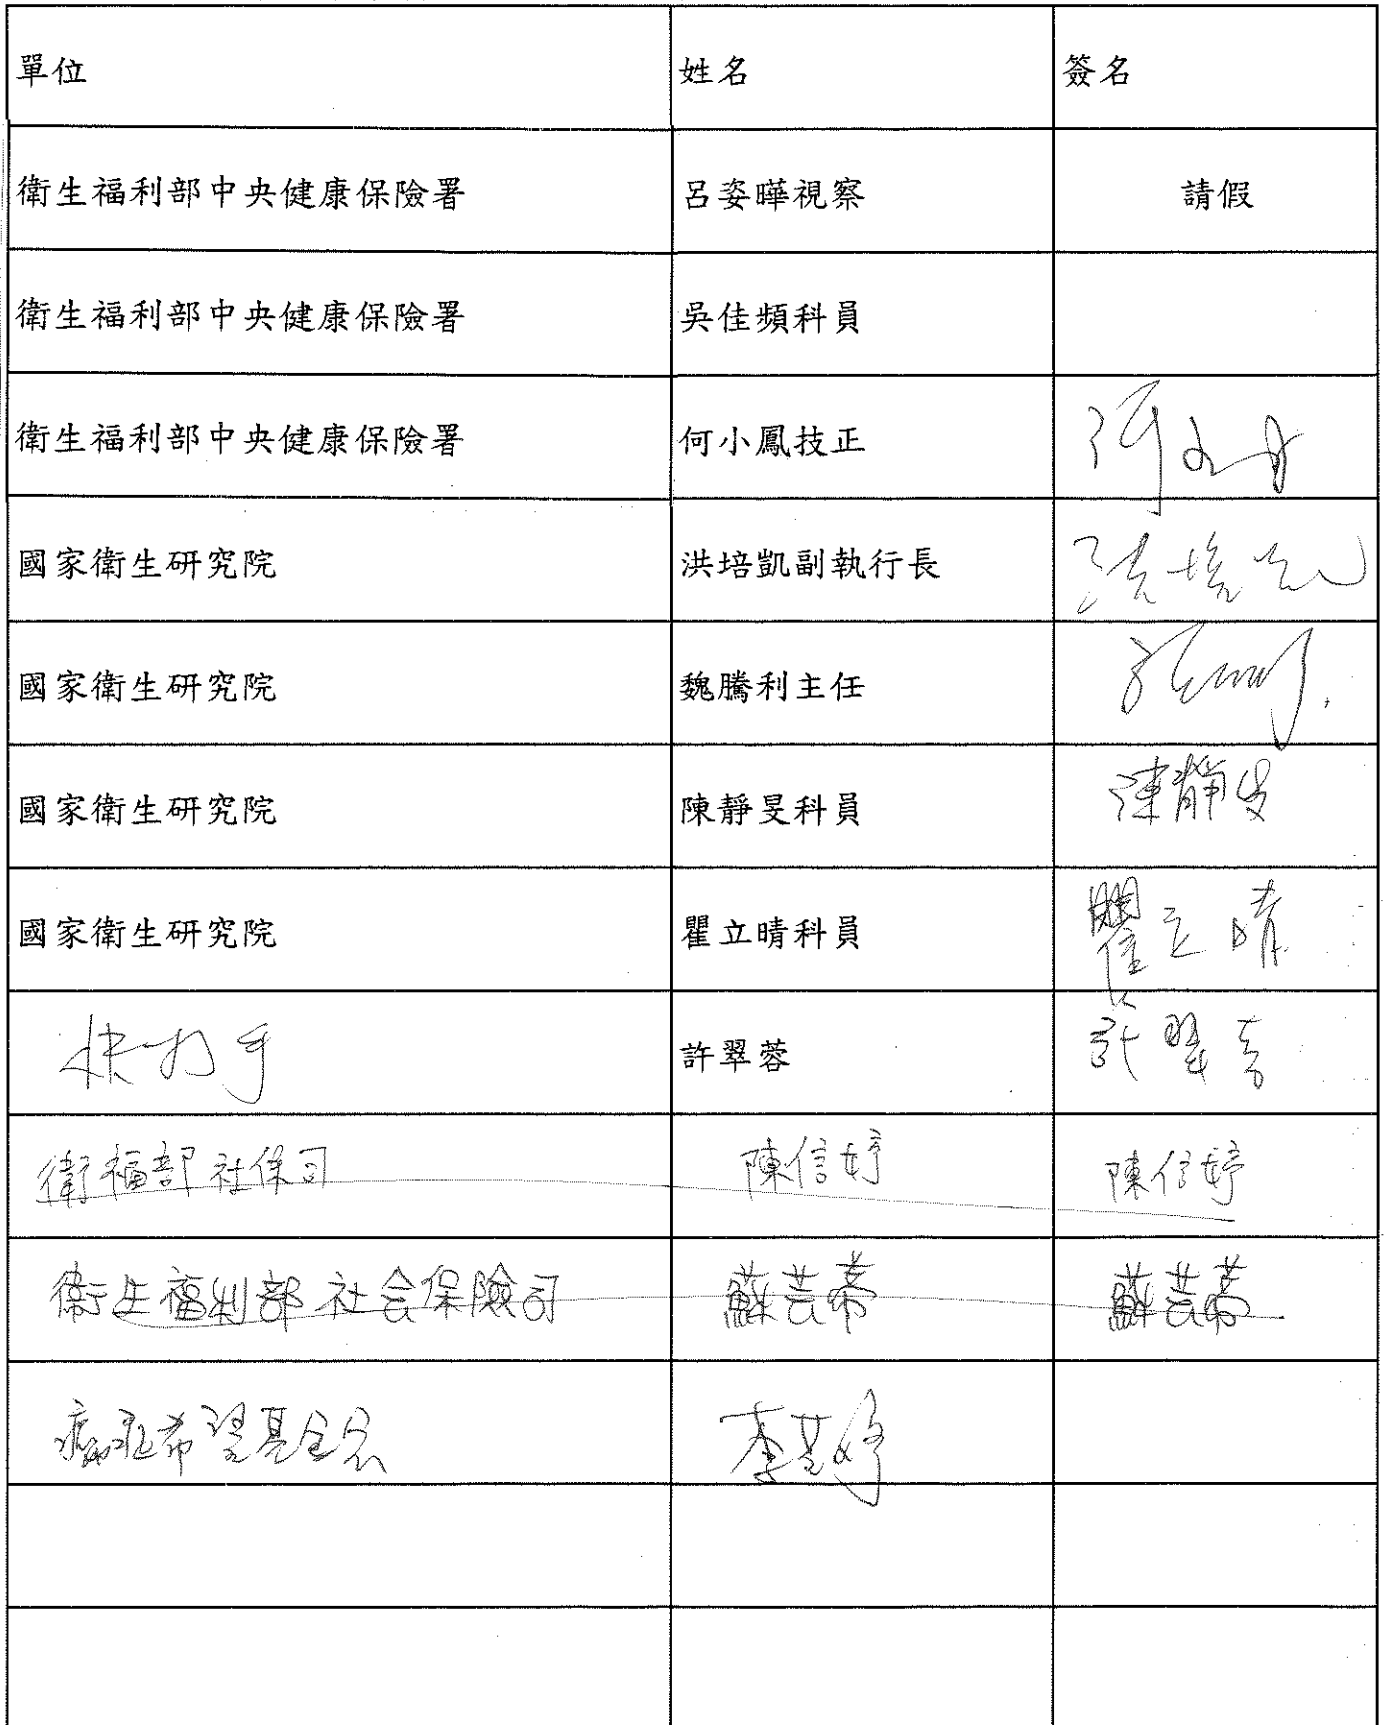 單位 姓名 簽名
衛生福利部中央健康保險署 呂姿曄視察 請假
衛生福利部中央健康保險署 吳佳頻科員
衛生福利部中央健康保險署 何小鳳技正
國家衛生研究院 洪培凱副執行長 洪培凱
國家衛生研究院 魏騰利主任
國家衛生研究院 陳靜旻科員 陳靜旻
國家衛生研究院 瞿立晴科員 瞿立晴
許翠蓉 許翠蓉
衛福部社保司 陳信婷 陳信婷
衛生福利部社会保險司 蘇芸蒂 蘇芸蒂
癌症希望基金会